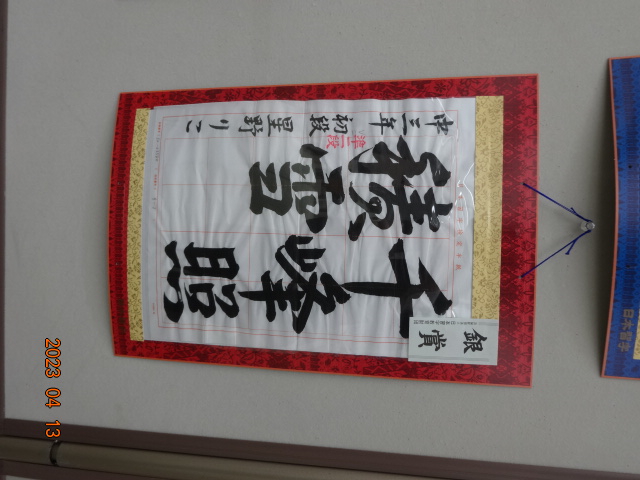 銀賞
千峰照
積雪
準二段
中三年 初段 星野りこ
日本習字
2023 04 13